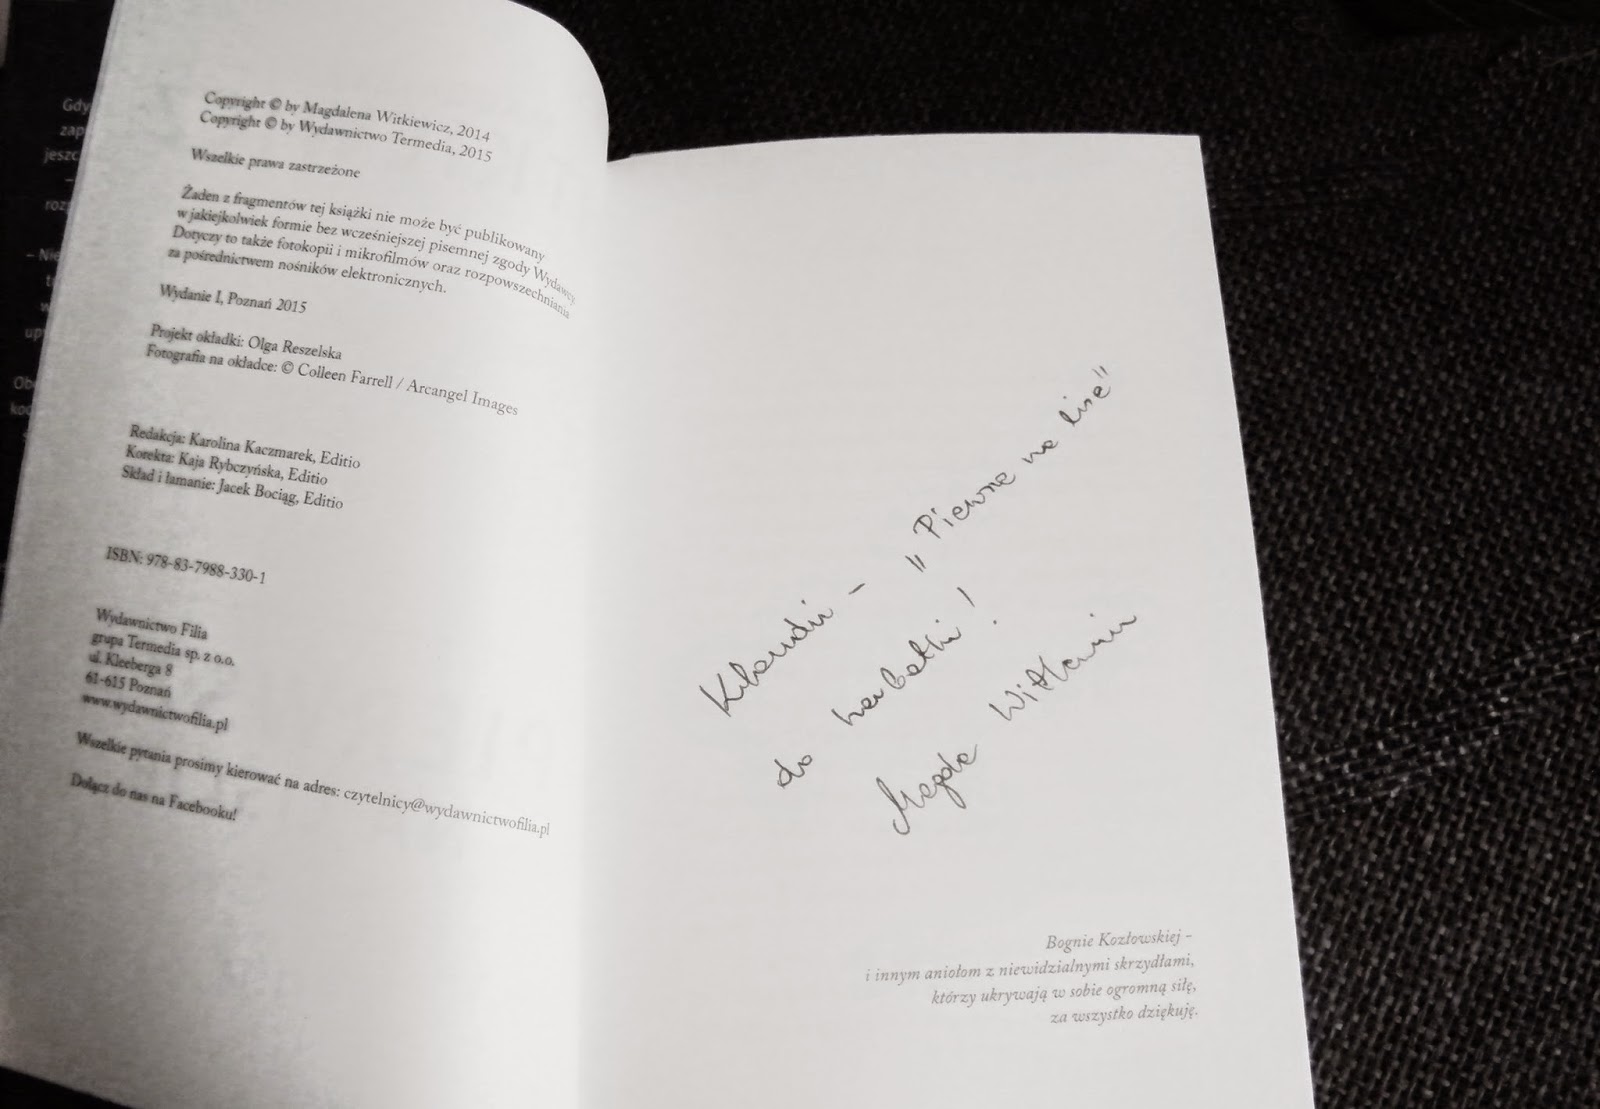 Gdy
zap
jeszc
–
roz
– Nie
t
w
up
Obe
koc
Copyright © by Magdalena Witkiewicz, 2014
Copyright © by Wydawnictwo Termedia, 2015
Wszelkie prawa zastrzeżone
Żaden z fragmentów tej książki nie może być publikowany
w jakiejkolwiek formie bez wcześniejszej pisemnej zgody Wydawcy.
Dotyczy to także fotokopii i mikrofilmów oraz rozpowszechniania
za pośrednictwem nośników elektronicznych.
Wydanie I, Poznań 2015
Projekt okładki: Olga Reszelska
Fotografia na okładce: © Colleen Farrell / Arcangel Images
Redakcja: Karolina Kaczmarek, Editio
Korekta: Kaja Rybczyńska, Editio
Skład i łamanie: Jacek Bociąg, Editio
ISBN: 978-83-7988-330-1
Wydawnictwo Filia
grupa Termedia sp. z o.o.
ul. Kleeberga 8
61-615 Poznań
www.wydawnictwofilia.pl
Wszelkie pytania prosimy kierować na adres: czytelnicy@wydawnictwofilia.pl
Dołącz do nas na Facebooku!
Klaudii – „Pierwsza na liście"
do herbatki!
Magda Witkiewicz
Bognie Kozłowskiej –
i innym aniołom z niewidzialnymi skrzydłami,
którzy ukrywają w sobie ogromną siłę,
za wszystko dziękuję.